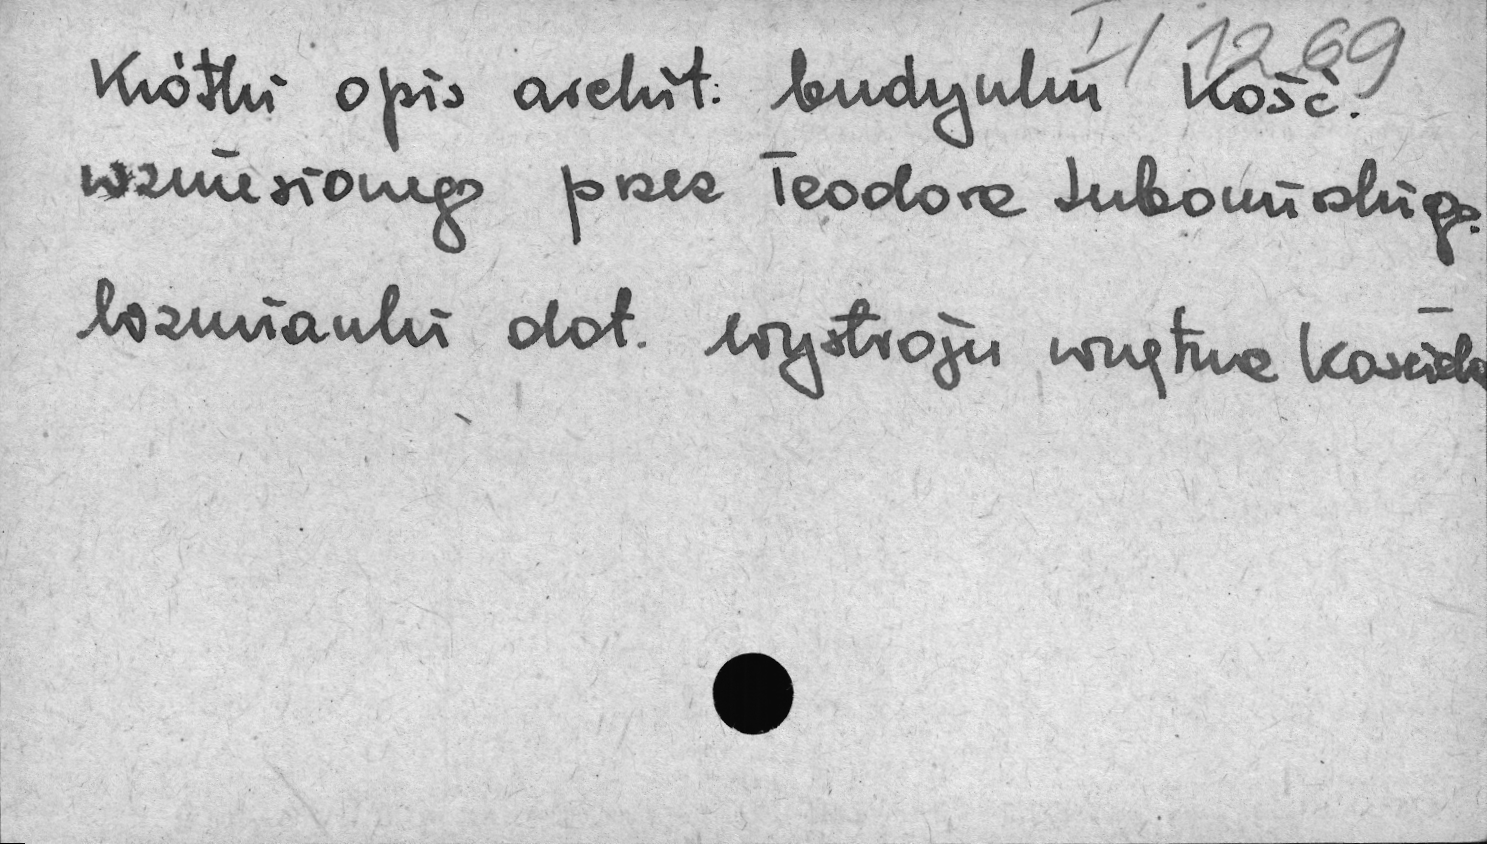 I/1269
Krótki opis archit. budynku Kość.
wzniesionego przez Teodora Lubomirskiego.
Wzmianki dot. wystroju wnętrza Kościoła